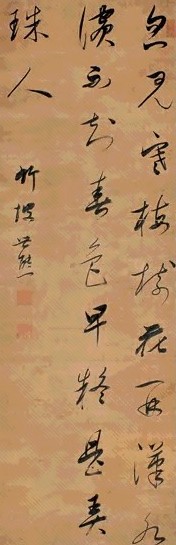 忽見寒梅樹花開漢水
濱不知春色早疑是弄
珠人
竹